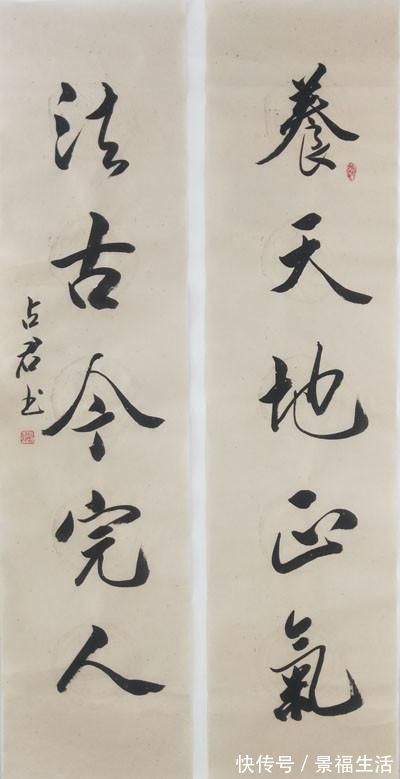 養天地正氣
法古今完人
占君书
快传号/景福生活